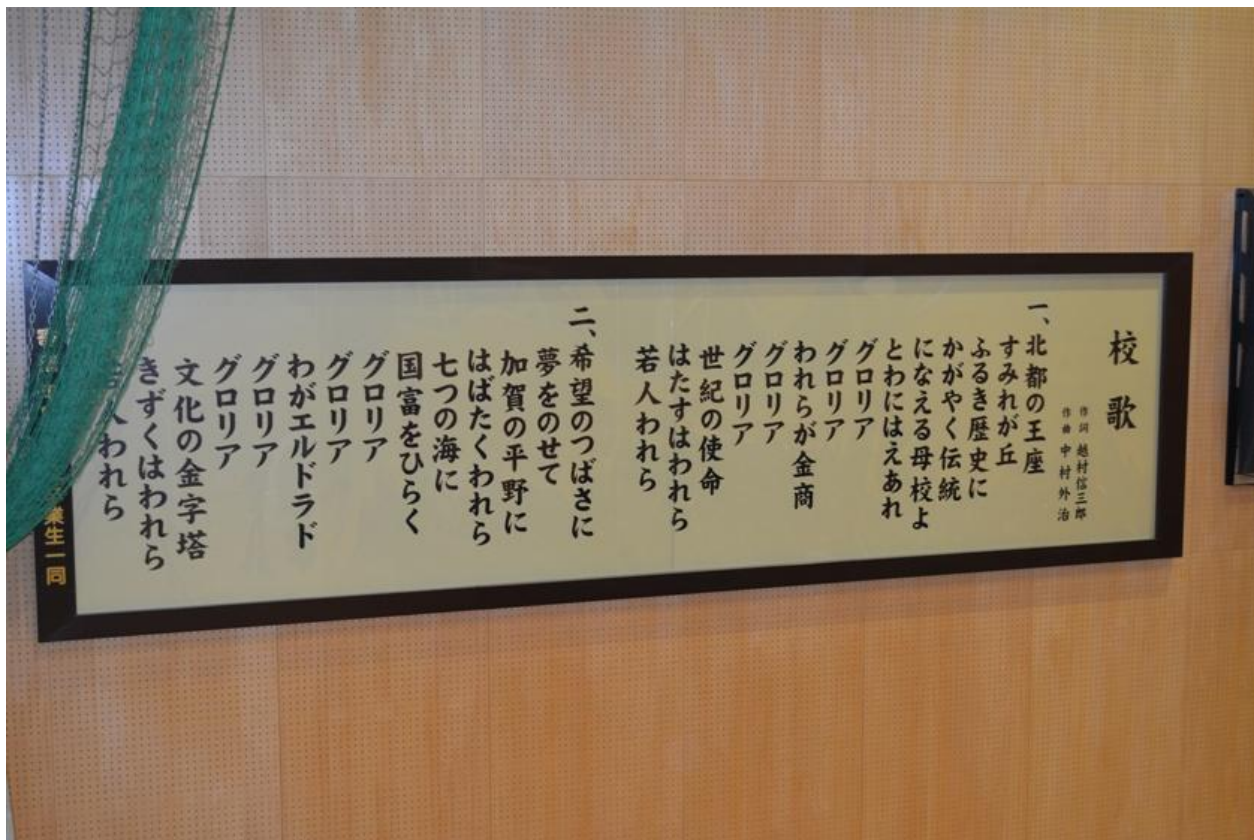 校歌
作詞 越村信三郎
作曲 中村外治
一、北都の王座
すみれが丘
ふるき歴史に
かがやく伝統
になえる母校よ
とわにはえあれ
グロリア
グロリア
われらが金商
グロリア
グロリア
世紀の使命
はたすはわれら
若人われら
二、希望のつばさに
夢をのせて
加賀の平野に
はばたくわれら
七つの海に
国富をひらく
グロリア
グロリア
わがエルドラド
グロリア
グロリア
文化の金字塔
きずくはわれら
若人われら
業生一同